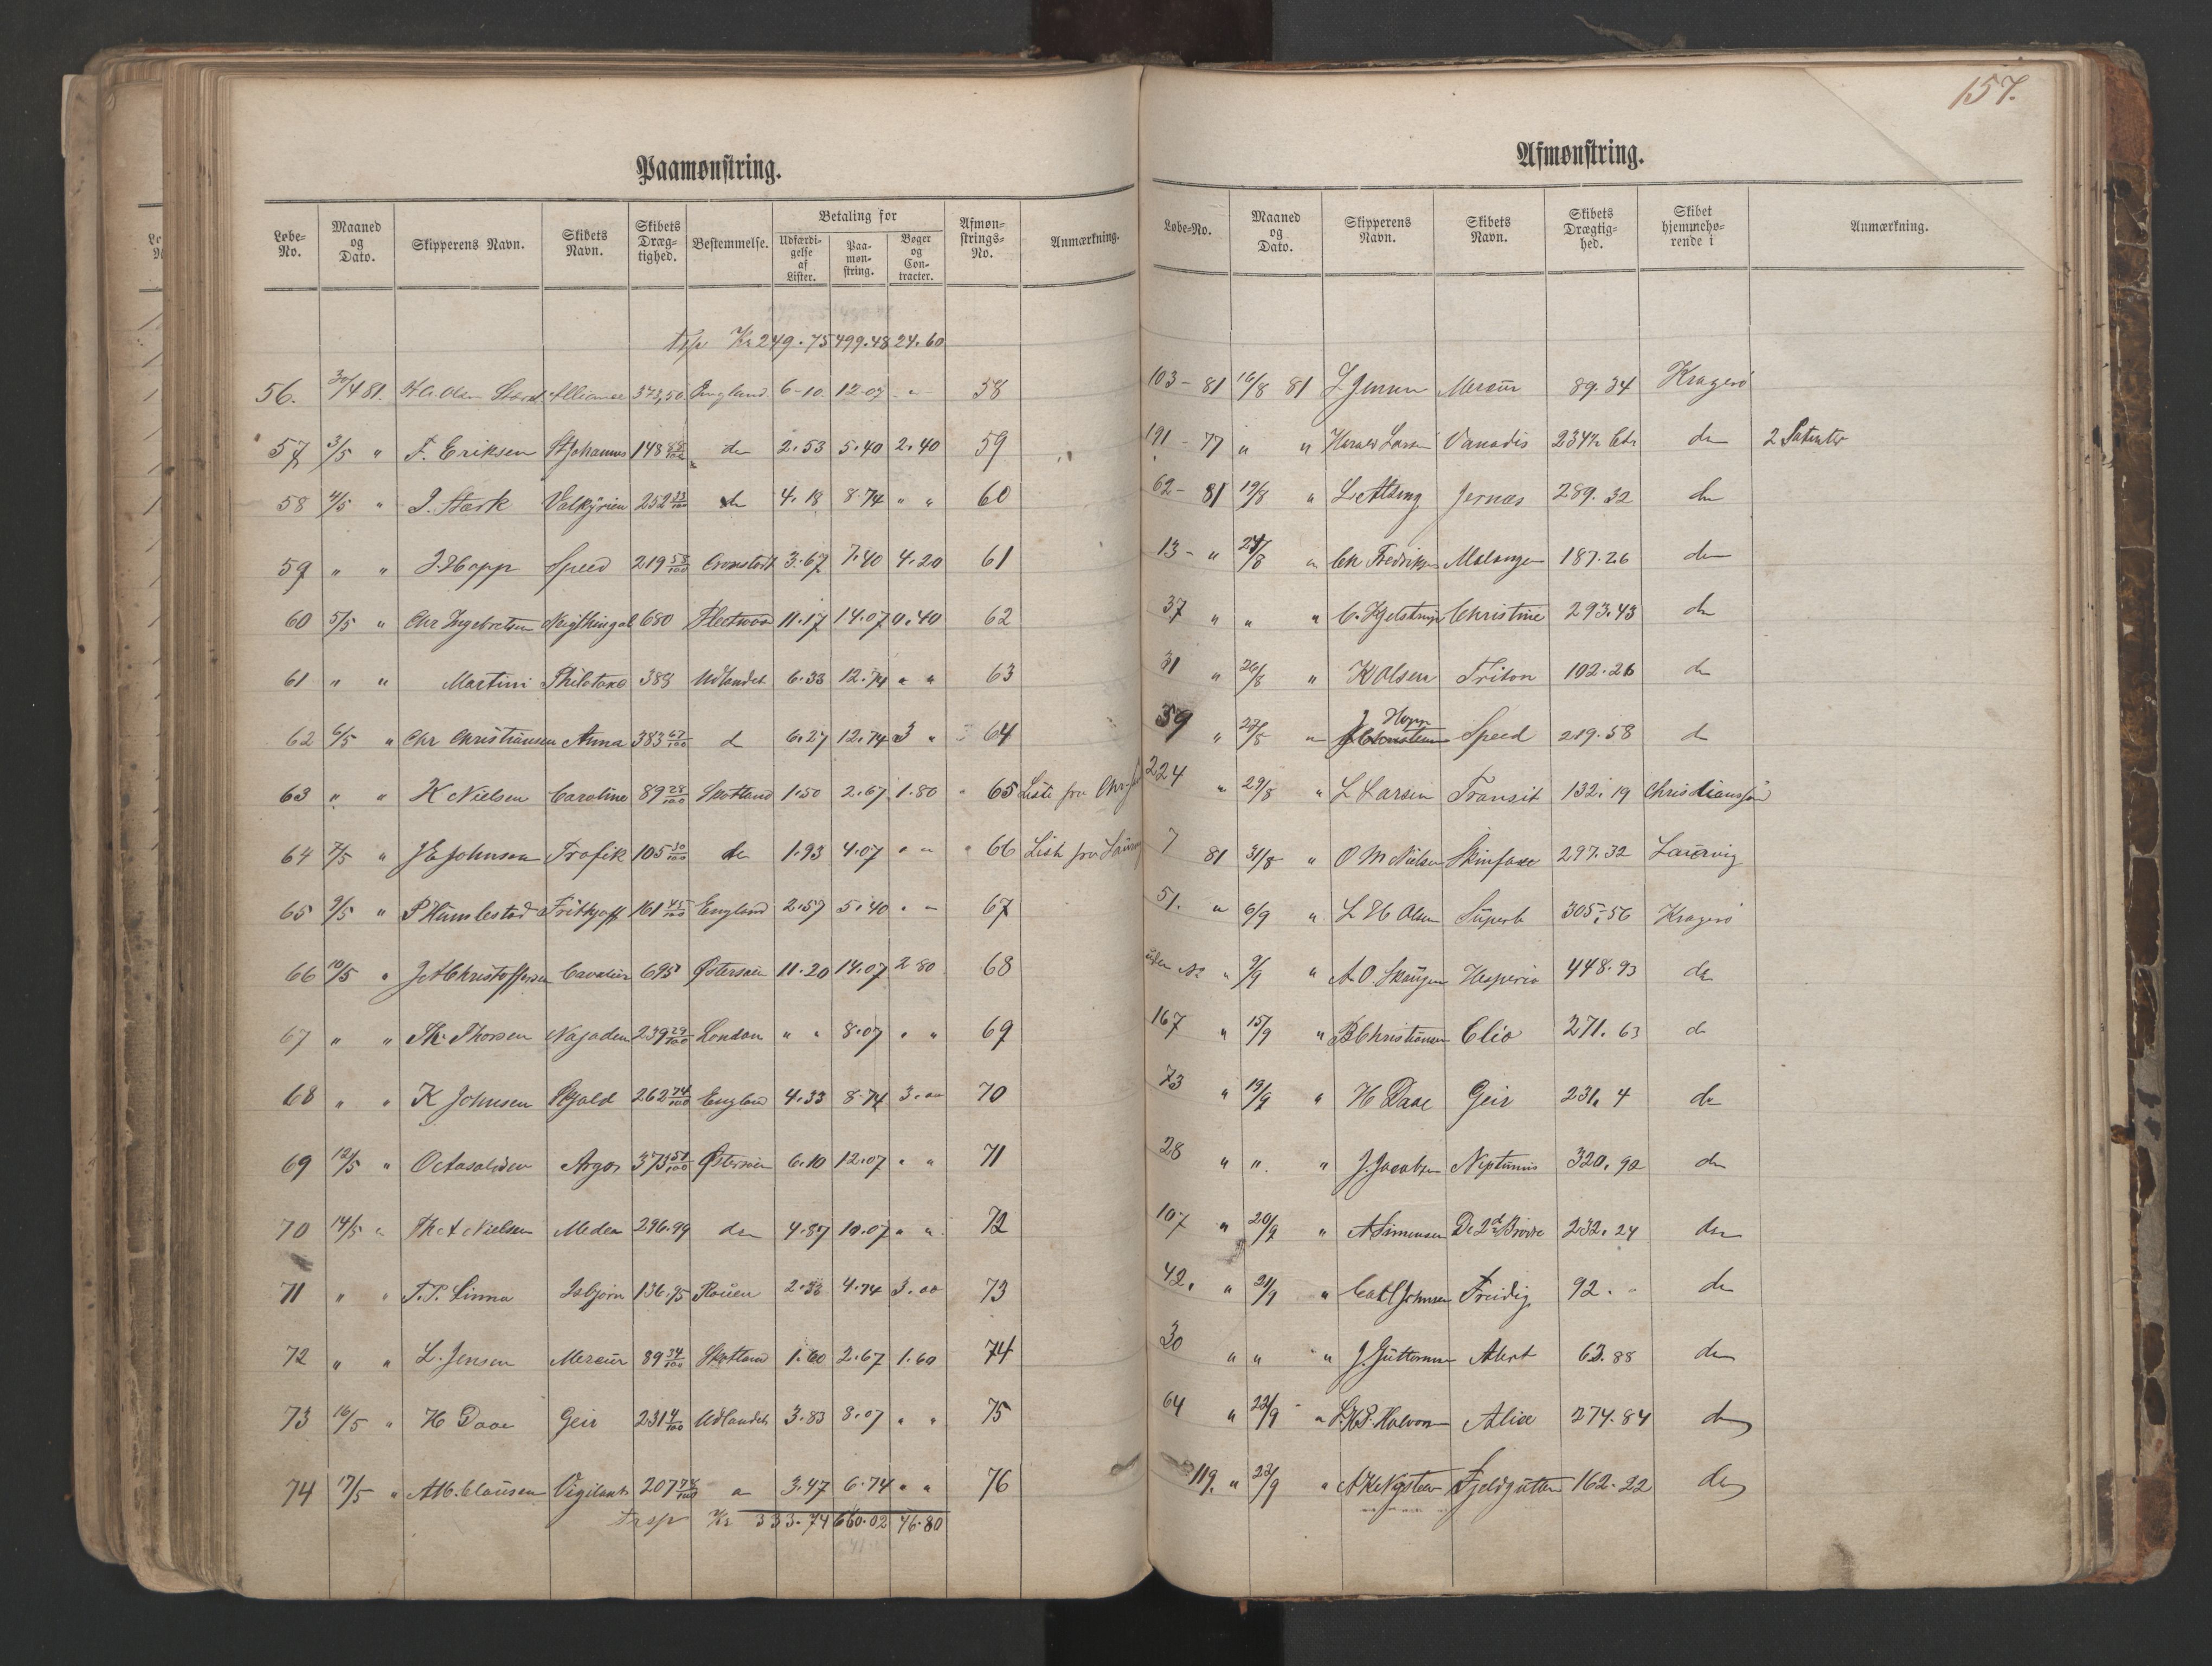 157.
Paamønstring.
Løbe-No. Maaned og Dato. Skipperens Navn. Skibets Navn. Skibets Dræg-tighed. Bestemmelse. Betaling for Udfærdi-gelse af Lister. Paa-møn-string. Bøger og Con-tracter. Afmøn-strings-No. Anmærkning.
Trsp Kr 249.75 499.48 24.60
56. 30/4 81. Olsen Alliance 373,50 England 6-10 12.07 " 58
57 3/5 " F. Eriksen St Johannes 148 do 2.53 5.40 2.40 59
58 4/5 " J. Stærk Valkyrien 252 23/100 do 4.18 8.74 " " 60
59 " " J. Hopp Speed 219 58/100 Cronstadt 3.67 7.40 4.20 61
60 5/5 " Chr Ingebretsen Nigthingal 680 Fleetwood 11.17 14.07 0.40 62
61 " " Martini 383 Udlandet 6.33 12.74 " " 63
62 6/5 " Chr Christiansen Anna 383 67/100 d 6.27 12.74 3 " 64
63 " " K Nielsen Caroline 89 28/100 Skotland 1.50 2.67 1.80 " 65 Liste fra
64 7/5 " J E Johnsen Trafik 105 30/100 do 1.93 4.07 " " " 66 Liste fra
65 9/5 " P Humlestad Frithjoff 161 45/100 England 2.57 5.40 " - 67
66 10/5 " J A Christoffersen Cavalier 695 Østersøen 11.20 14.07 2 80 68
67 " " Th. Thorsen Najaden 239 29/100 London " " 8.07 " " 69
68 " " K Johnsen 262 74/100 England 4.33 8.74 3.00 70
69 12/5 " O Argo 373 51/100 Østersøen 6.10 12.07 " " 71
70 14/5 " Th A Nielsen Medea 296.99 do 4.87 10.07 " " 72
71 " " T. P. Linna Isbjørn 136.95 Rouen 2.33 4.74 3.00 73
72 " " L. Jensen Mercur 89 34/100 Skotland 1.60 2.67 1.60 74
73 16/5 " H Daae Geir 231 4/100 Udlandet 3.83 8.07 " " 75
74 17/5 " Clausen Vigilant 207 " 3.47 6.74 " " 76
Trsp Kr 333.74 660.02 46.80
Afmønstring.
Løbe-No. Maaned og Dato. Skipperens Navn. Skibets Navn. Skibets Drægtig-hed. Skibet hjemmehø-rende i Anmærkning.
103 - 81 16/8 81 L Jensen Mercur 89.34 Kragerø
191 - 77 " " Larsen Vanadis 234½ Cl do 2
62 - 81 19/8 " L Jernæs 289.32 do
13 - " 24/8 " Chr Fredriksen Malangen 187.26 do
37 " " " C. Christine 293.43 do
31 " 26/8 " K Olsen Triton 102.26 do
59 " 27/8 " J Hopp Speed 219.58 d
224 " 29/8 " L Larsen Transit 132.19 Christianssand
7 81 31/8 " O M Nielsen Skinfaxe 297.32 Laurvig
51. " 6/9 " L H Olsen Superb 305.56 Kragerø
uden No " 9/9 " A. O. Hesperia 448.93 do
167 " 15/9 " Christiansen Clio 271.63 do
73 " 19/9 " H Daae Geir 231.4 do
28 " " " J. Jacobsen Neptunus 320.92 do
107 " 20/9 " A Simensen De 2de Brødre 232.24 do
42. " 21/9 " Carl Johnsen Freidig 92. - do
30 " " " J. Guttormsen 63.88 do
64 " 22/9 " Alice 274.84 do
119. " 22/9 " Fjeldgutten 162.22 do